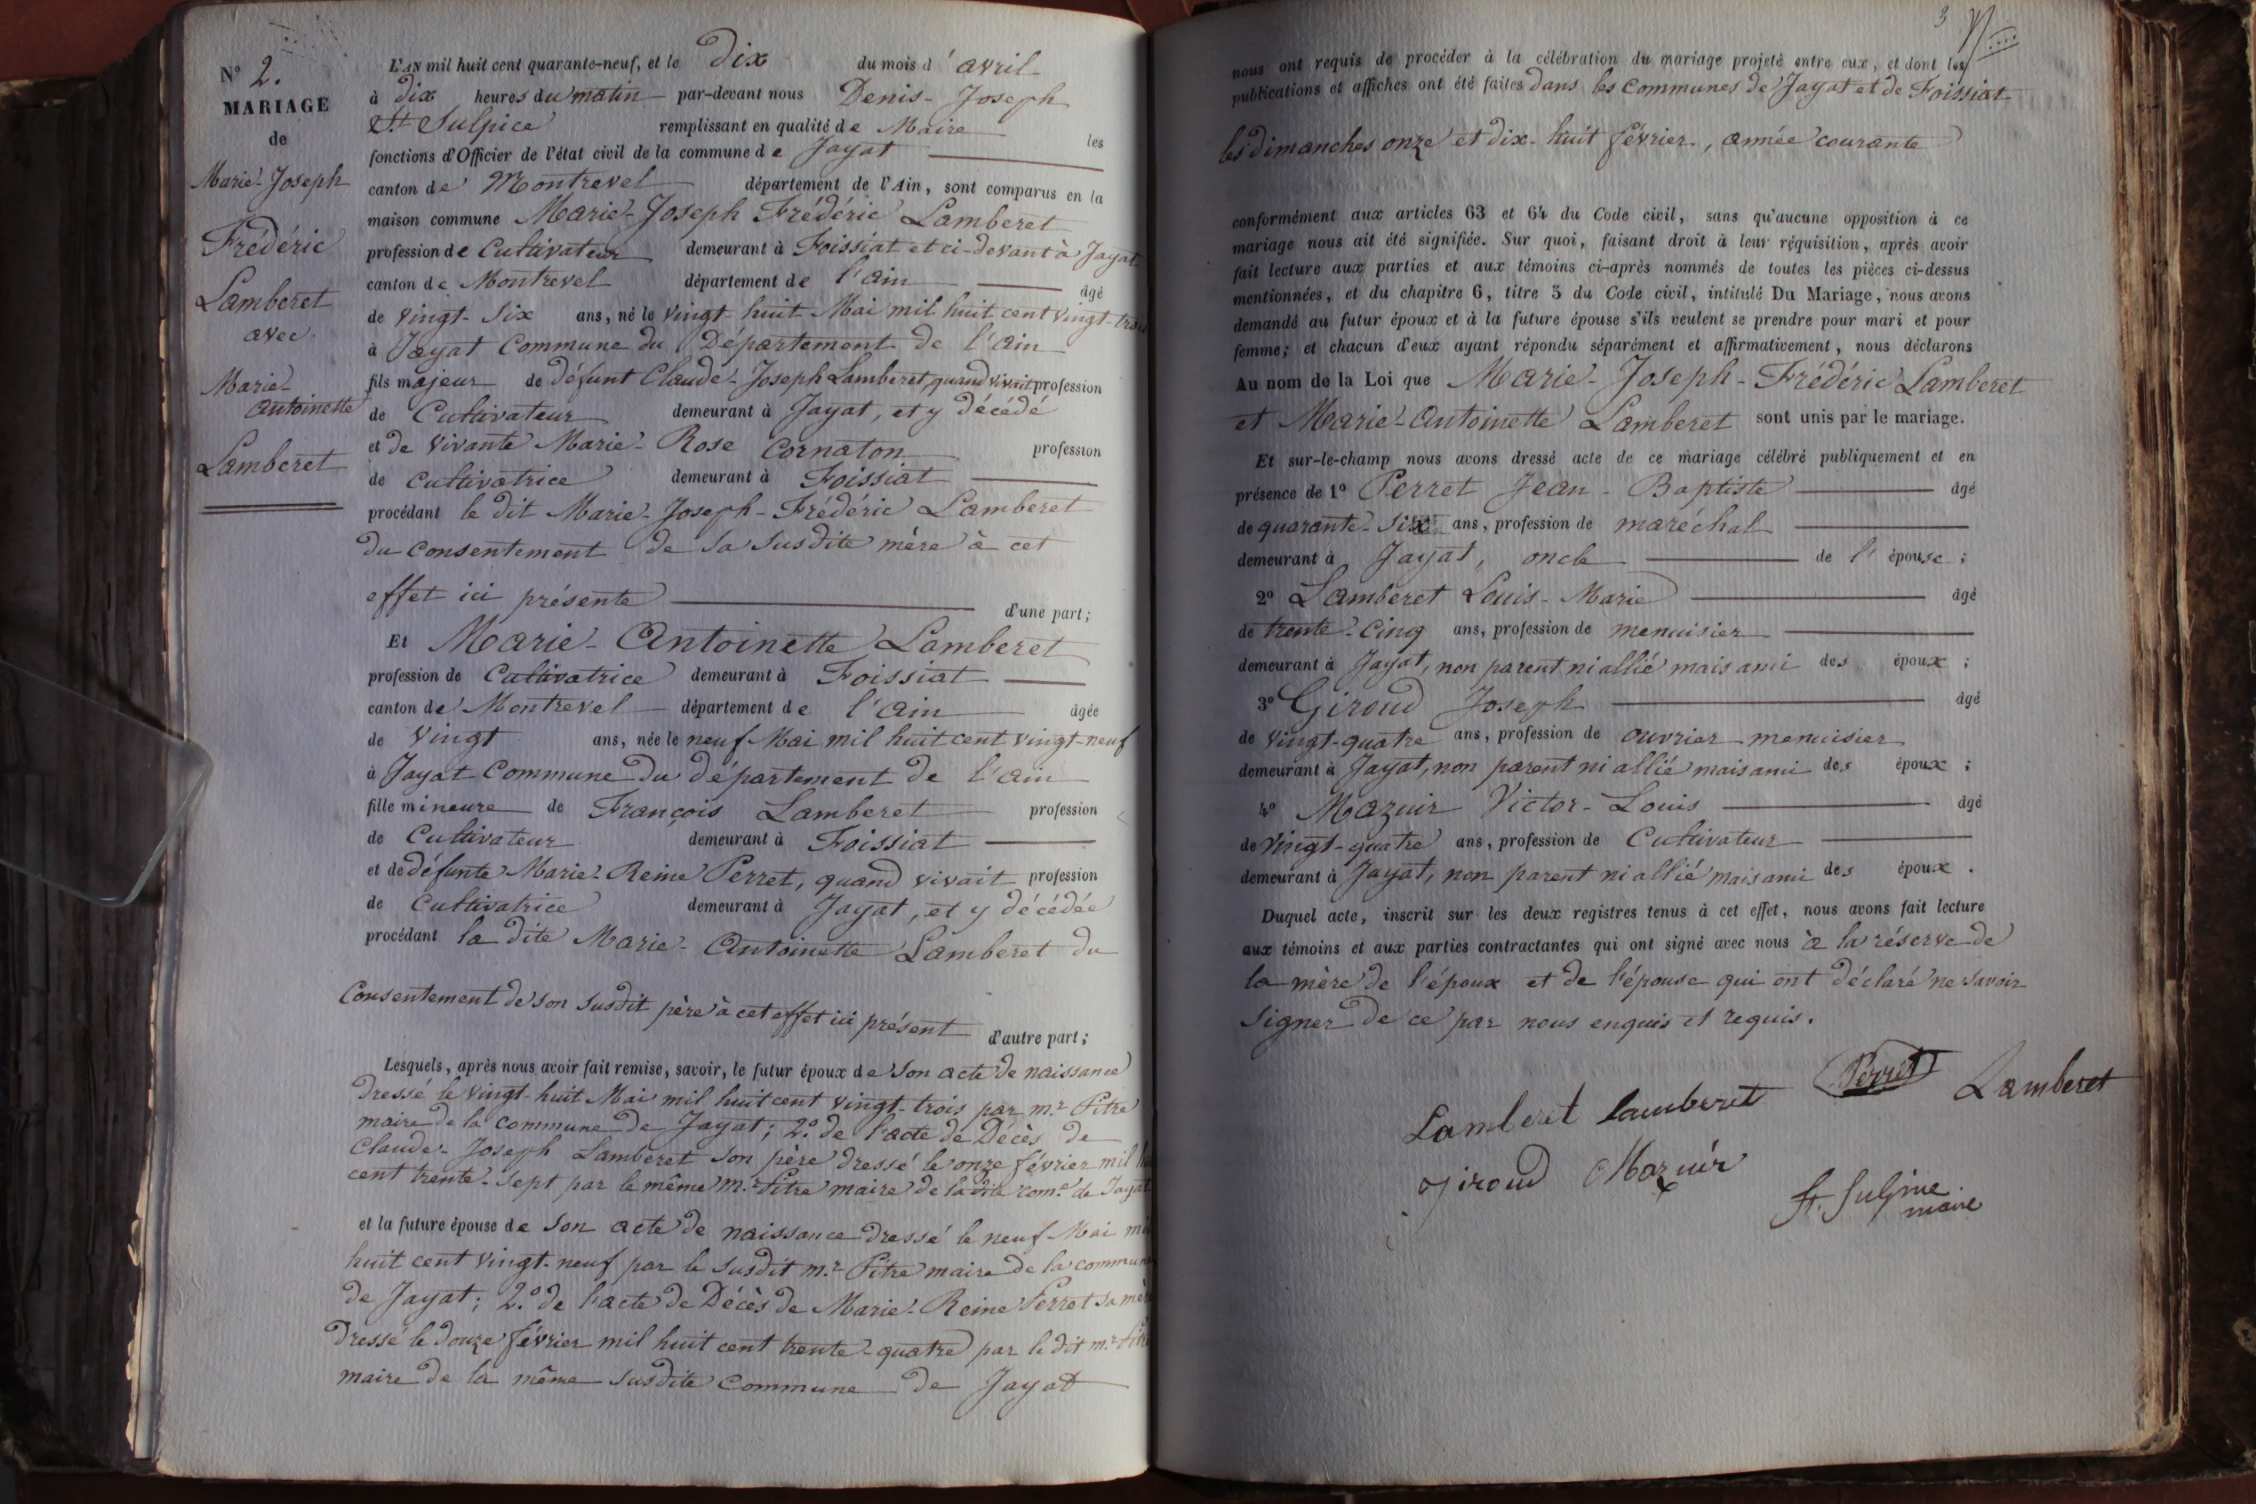 N° 2.
MARIAGE
de
Marie-Joseph
Frédéric
Lamberet
avec
Marie-
Antoinette
Lamberet
L'AN mil huit cent quarante-neuf, et le dix du mois d'avril
à dix heures du matin par-devant nous Denis-Joseph
St Sulpice remplissant en qualité de Maire les
fonctions d'Officier de l'état civil de la commune de Jayat
canton de Montrevel département de l'Ain, sont comparus en la
maison commune Marie-Joseph Frédéric Lamberet
profession de Cultivateur demeurant à Foissiat et ci-devant à Jayat
canton de Montrevel département de l'ain âgé
de vingt-six ans, né le vingt-huit Mai mil huit cent vingt-trois
à Jayat Commune du Département de l'ain
fils majeur de défunt Claude-Joseph Lamberet, quand vivait profession
de Cultivateur demeurant à Jayat, et y décédé
et de vivante Marie-Rose Cornaton profession
de Cultivatrice demeurant à Foissiat
procédant le dit Marie-Joseph-Frédéric Lamberet
du consentement de sa susdite mère à cet
effet ici présente d'une part;
Et Marie-Antoinette Lamberet
profession de Cultivatrice demeurant à Foissiat
canton de Montrevel département de l'ain âgée
de vingt ans, née le neuf Mai mil huit cent vingt-neuf
à Jayat Commune du département de l'ain
fille mineure de François Lamberet profession
de Cultivateur demeurant à Foissiat
et de défunte Marie-Reine Perret, quand vivait profession
de Cultivatrice demeurant à Jayat, et y décédée
procédant la dite Marie-Antoinette Lamberet du
Consentement de son susdit père à cet effet ici présent d'autre part;
Lesquels, après nous avoir fait remise, savoir, le futur époux de son acte de naissance
dressé le vingt-huit Mai mil huit cent vingt-trois par m.r Pitre
maire de la commune de Jayat; 2.° de l'acte de Décès de
Claude-Joseph Lamberet son père dressé le onze février mil
cent trente-sept par le même m.r Pitre maire de la dite com.e de Jayat
et la future épouse de son acte de naissance dressé le neuf Mai
huit cent vingt-neuf par le susdit m.r Pitre maire de la commune
de Jayat; 2.° de l'acte de Décès de Marie-Reine Perret sa mère
dressé le douze février mil huit cent trente-quatre par le dit m.r Pitre
maire de la même susdite commune de Jayat
3
nous ont requis de procéder à la célébration du mariage projeté entre eux, et dont les
publications et affiches ont été faites dans les Communes de Jayat et de Foissiat
les dimanches onze et dix-huit février, année courante
conformément aux articles 63 et 64 du Code civil, sans qu'aucune opposition à ce
mariage nous ait été signifiée. Sur quoi, faisant droit à leur réquisition, après avoir
fait lecture aux parties et aux témoins ci-après nommés de toutes les pièces ci-dessus
mentionnées, et du chapitre 6, titre 5 du Code civil, intitulé Du Mariage, nous avons
demandé au futur époux et à la future épouse s'ils veulent se prendre pour mari et pour
femme; et chacun d'eux ayant répondu séparément et affirmativement, nous déclarons
Au nom de la Loi que Marie-Joseph-Frédéric Lamberet
et Marie-Antoinette Lamberet sont unis par le mariage.
Et sur-le-champ nous avons dressé acte de ce mariage célébré publiquement et en
présence de 1° Perret Jean-Baptiste âgé
de quarante-six ans, profession de maréchal
demeurant à Jayat, oncle de l'épouse;
2° Lamberet Louis-Marie âgé
de trente-cinq ans, profession de menuisier
demeurant à Jayat, non parent ni allié mais ami des époux;
3° Giroud Joseph âgé
de vingt-quatre ans, profession de ouvrier menuisier
demeurant à Jayat, non parent ni allié mais ami des époux;
4° Mazuir Victor-Louis âgé
de vingt-quatre ans, profession de Cultivateur
demeurant à Jayat, non parent ni allié mais ami des époux.
Duquel acte, inscrit sur les deux registres tenus à cet effet, nous avons fait lecture
aux témoins et aux parties contractantes qui ont signé avec nous à la réserve de
la mère de l'époux et de l'épouse qui ont déclaré ne savoir
signer de ce par nous enquis et requis.
Lamberet lamberet Perret Lamberet
Giroud Mazuir
St. Sulpice
maire